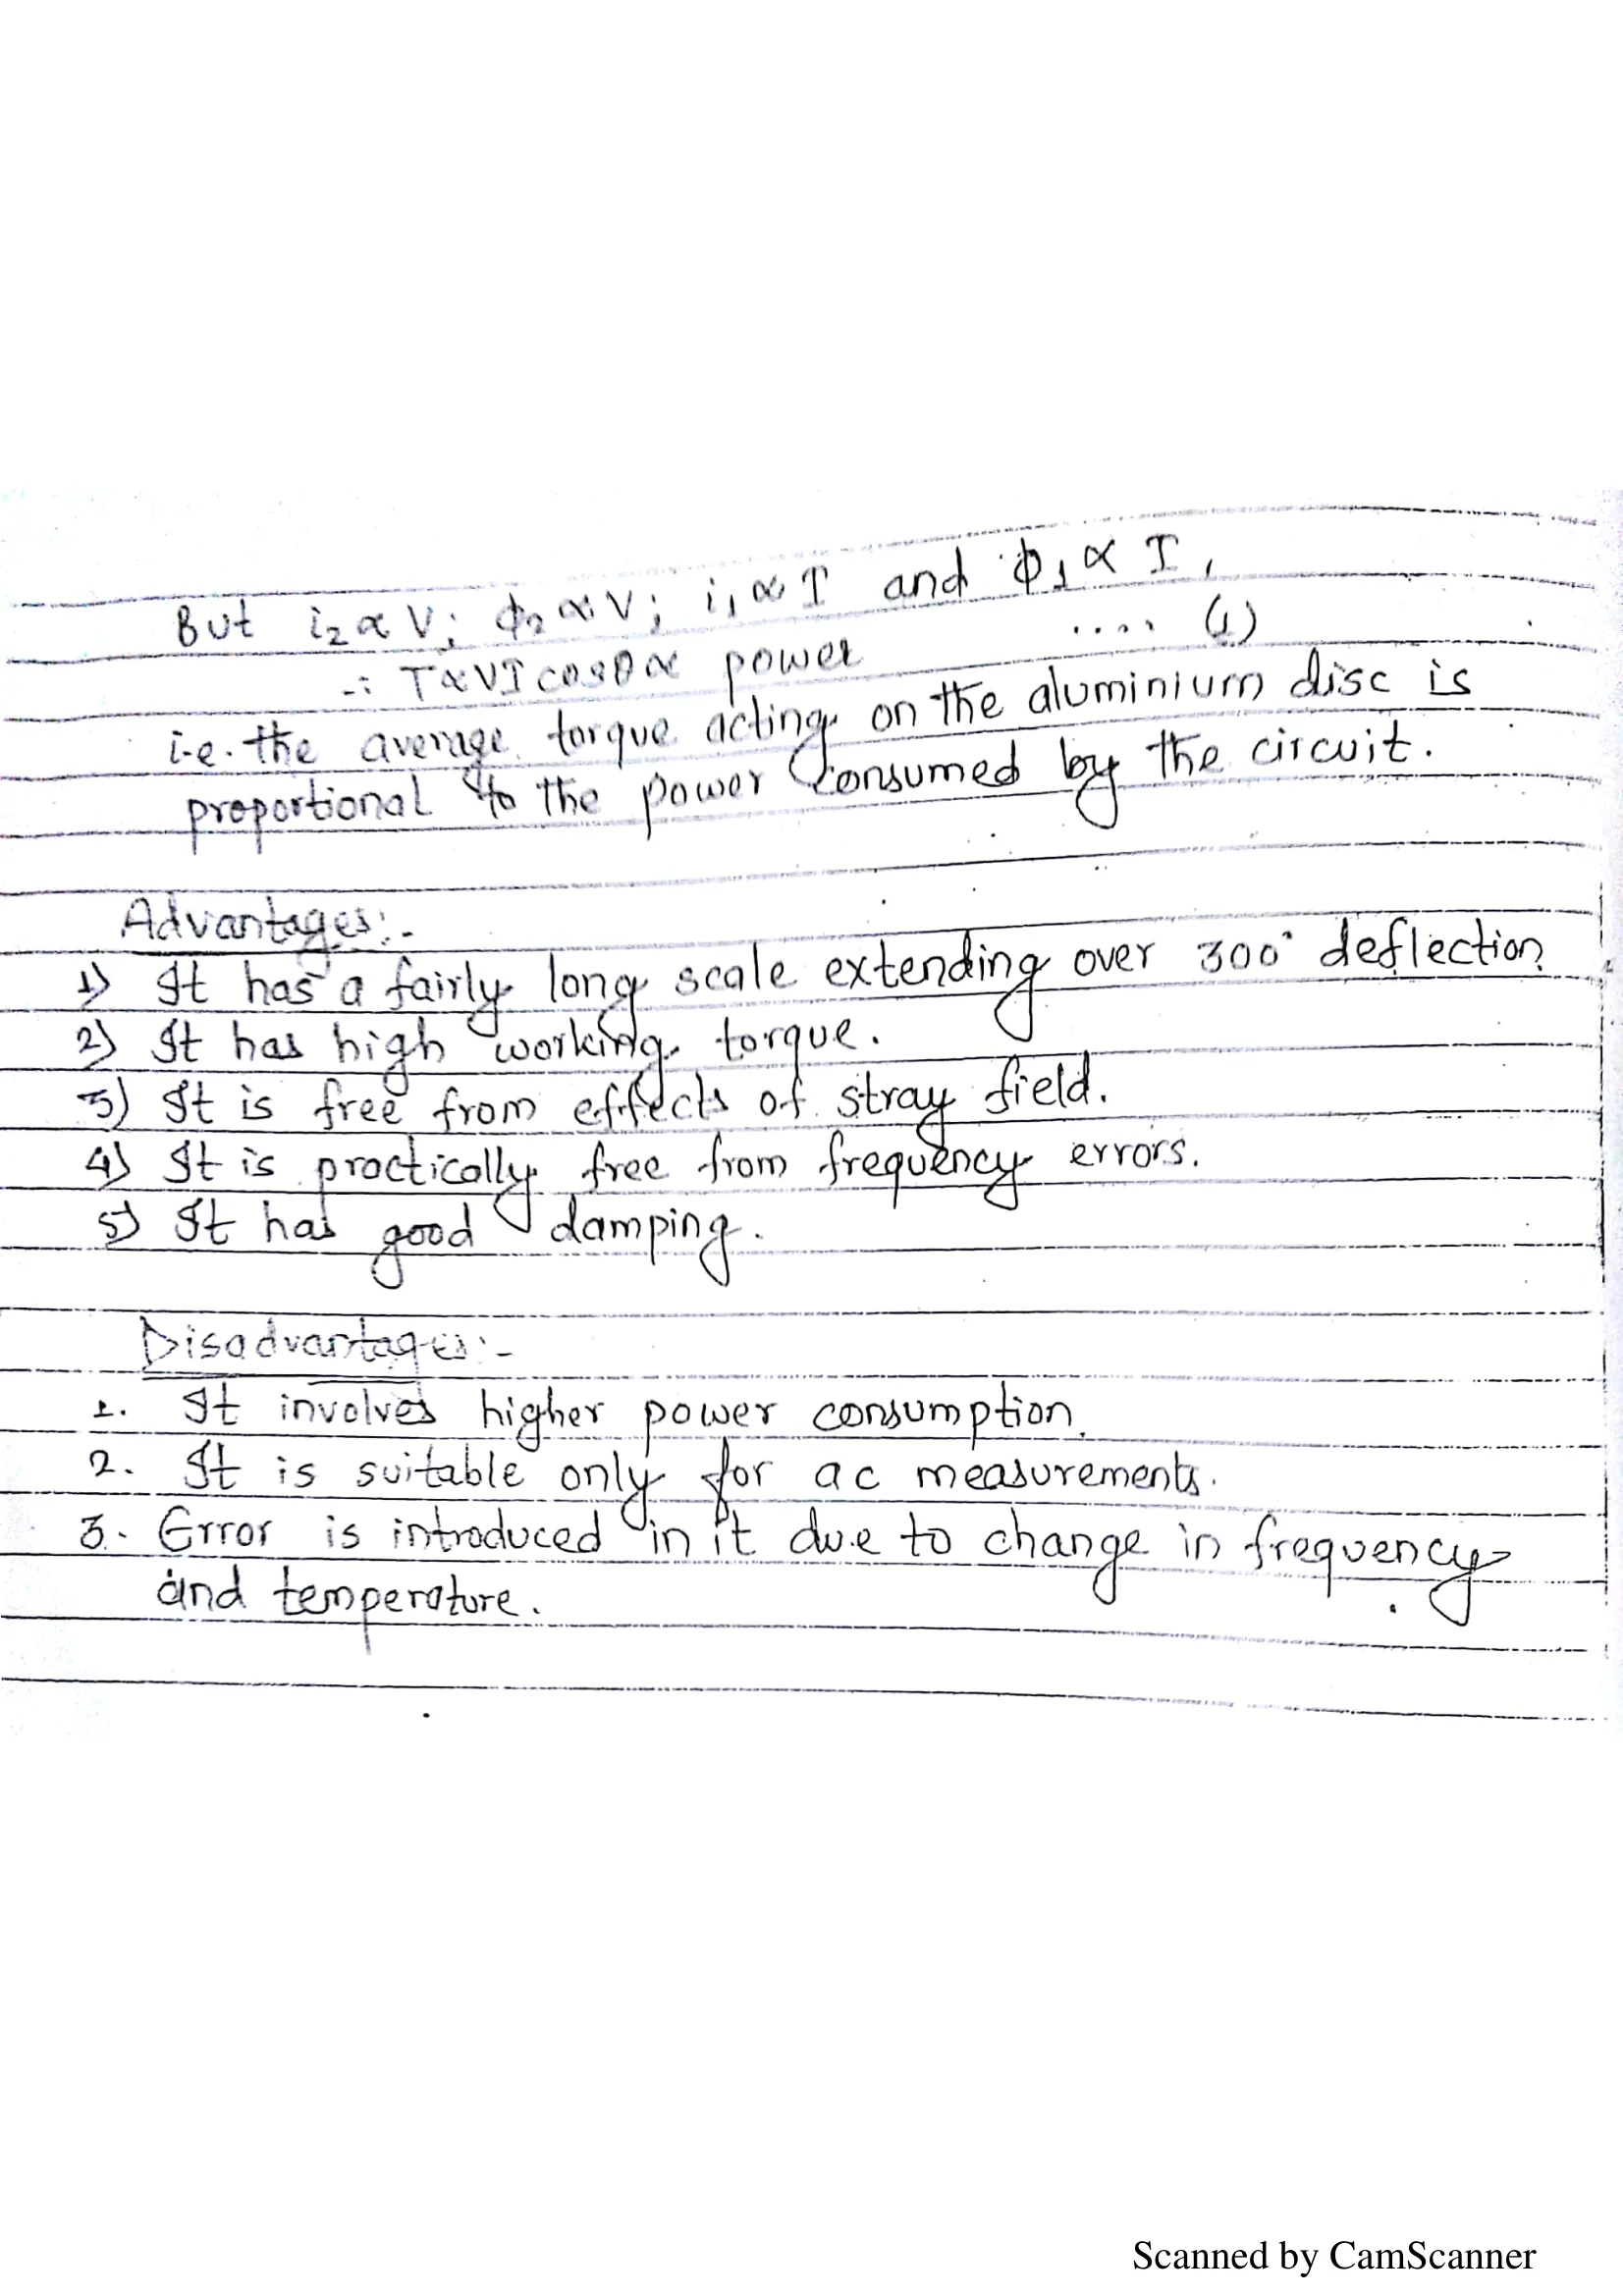 But i₂ ∝ V; ϕ₂ ∝ V; i₁ ∝ I and ϕ₁ ∝ I,
∴ T ∝ VI cosθ ∝ power .... (1)
i.e. the average torque acting on the aluminium disc is
proportional to the power consumed by the circuit.
Advantages:-
1) It has a fairly long scale extending over 300° deflection
2) It has high working torque.
3) It is free from effects of stray field.
4) It is practically free from frequency errors.
5) It has good damping.
Disadvantages:-
1. It involves higher power consumption.
2. It is suitable only for ac measurements.
3. Error is introduced in it due to change in frequency
and temperature.
Scanned by CamScanner